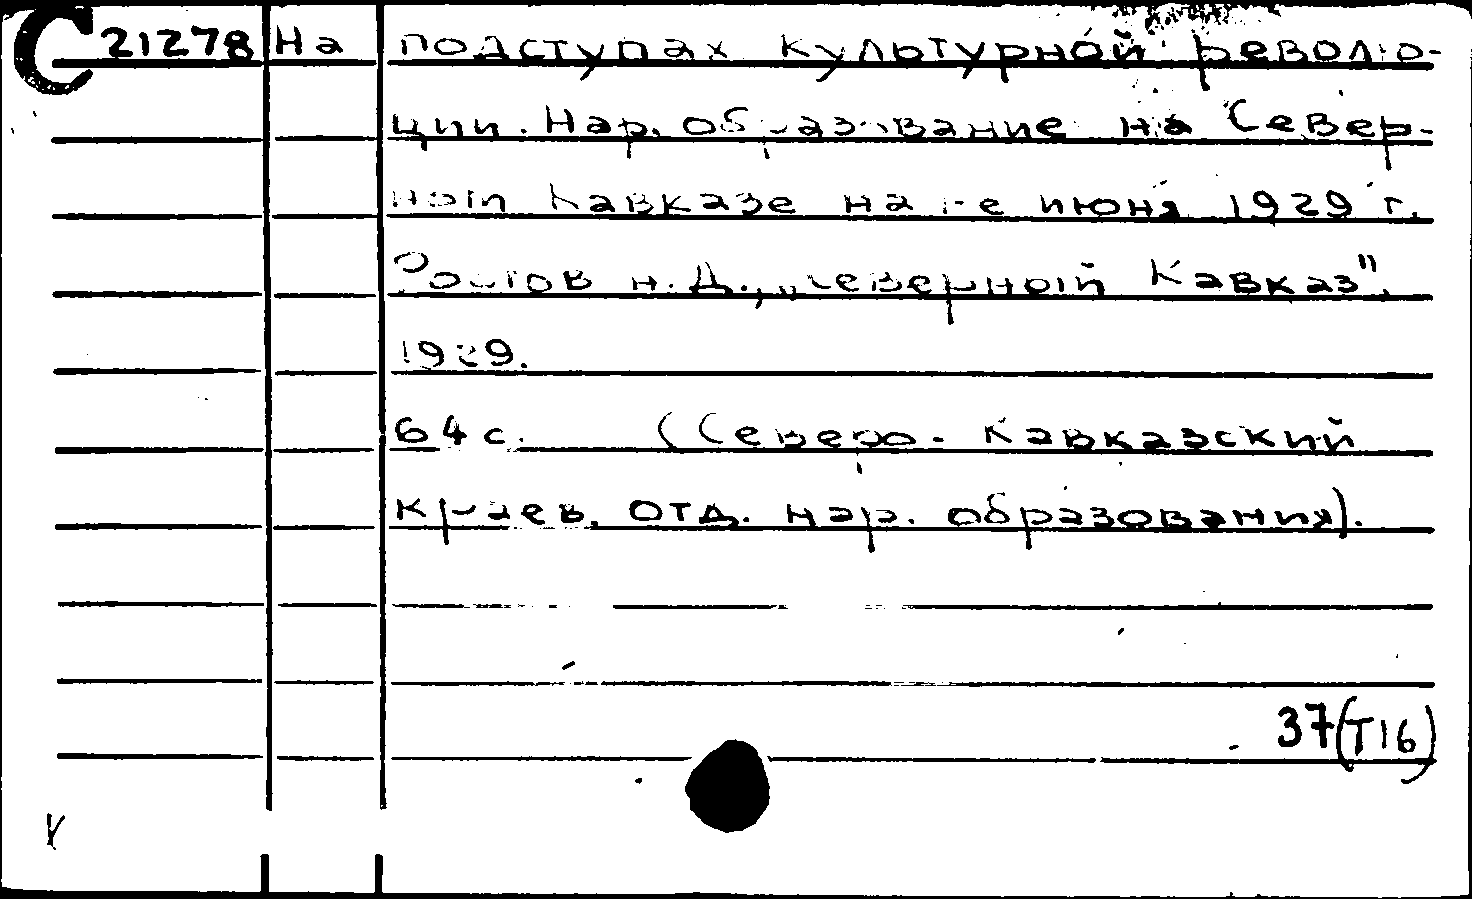 С 21278 На подступах культурной револю-
ции. Нар. образование на Север-
ном Кавказе на 1-е июня 1929 г.
Ростов н.Д., „Северный Кавказ",
1929.
64 с. (Северо-Кавказский
краев. отд. нар. образования).
37(Т16)